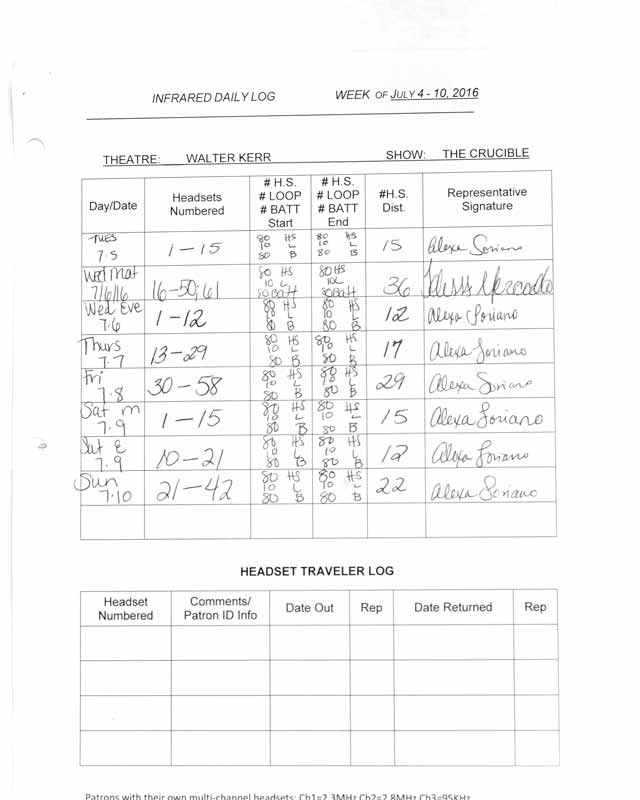 INFRARED DAILY LOG WEEK OF JULY 4 - 10, 2016
THEATRE: WALTER KERR SHOW: THE CRUCIBLE
Day/Date Headsets Numbered # H.S. # LOOP # BATT Start # H.S. # LOOP # BATT End #H.S. Dist. Representative Signature
TUES 7.5 1-15 80 HS 10 L 80 B 80 HS 10 L 80 B 15 Alexa Soriano
Wed Mat 7/6/16 16-50, 61 80 HS 10 L 80 Batt 80 HS 10L 80 Batt 36 Mercado
Wed Eve 7.6 1-12 80 HS 10 L 80 B 80 HS 10 L 80 B 12 Alexa Soriano
Thurs 7.7 13-29 80 HS 10 L 80 B 80 HS 10 L 80 B 17 Alexa Soriano
Fri 7.8 30-58 80 HS 10 L 80 B 80 HS 10 L 80 B 29 Alexa Soriano
Sat m 7.9 1-15 80 HS 10 L 80 B 80 HS 10 L 80 B 15 Alexa Soriano
Sat E 7.9 10-21 80 HS 10 L 80 B 80 HS 10 L 80 B 12 Alexa Soriano
Sun 7.10 21-42 80 HS 10 L 80 B 80 HS 10 L 80 B 22 Alexa Soriano
HEADSET TRAVELER LOG
Headset Numbered Comments/ Patron ID Info Date Out Rep Date Returned Rep
Patrons with their own multi-channel headsets: Ch1=2.3MHz Ch2=2.8MHz Ch3=95KHz